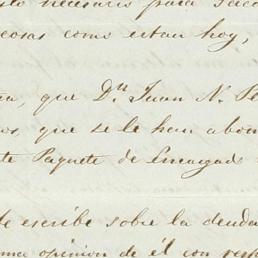 necesario para
cosas como estan hoy,
que Dn. Juan N.
que se le han
Paquete de Encargad
escribe sobre la deuda
opinion de él con